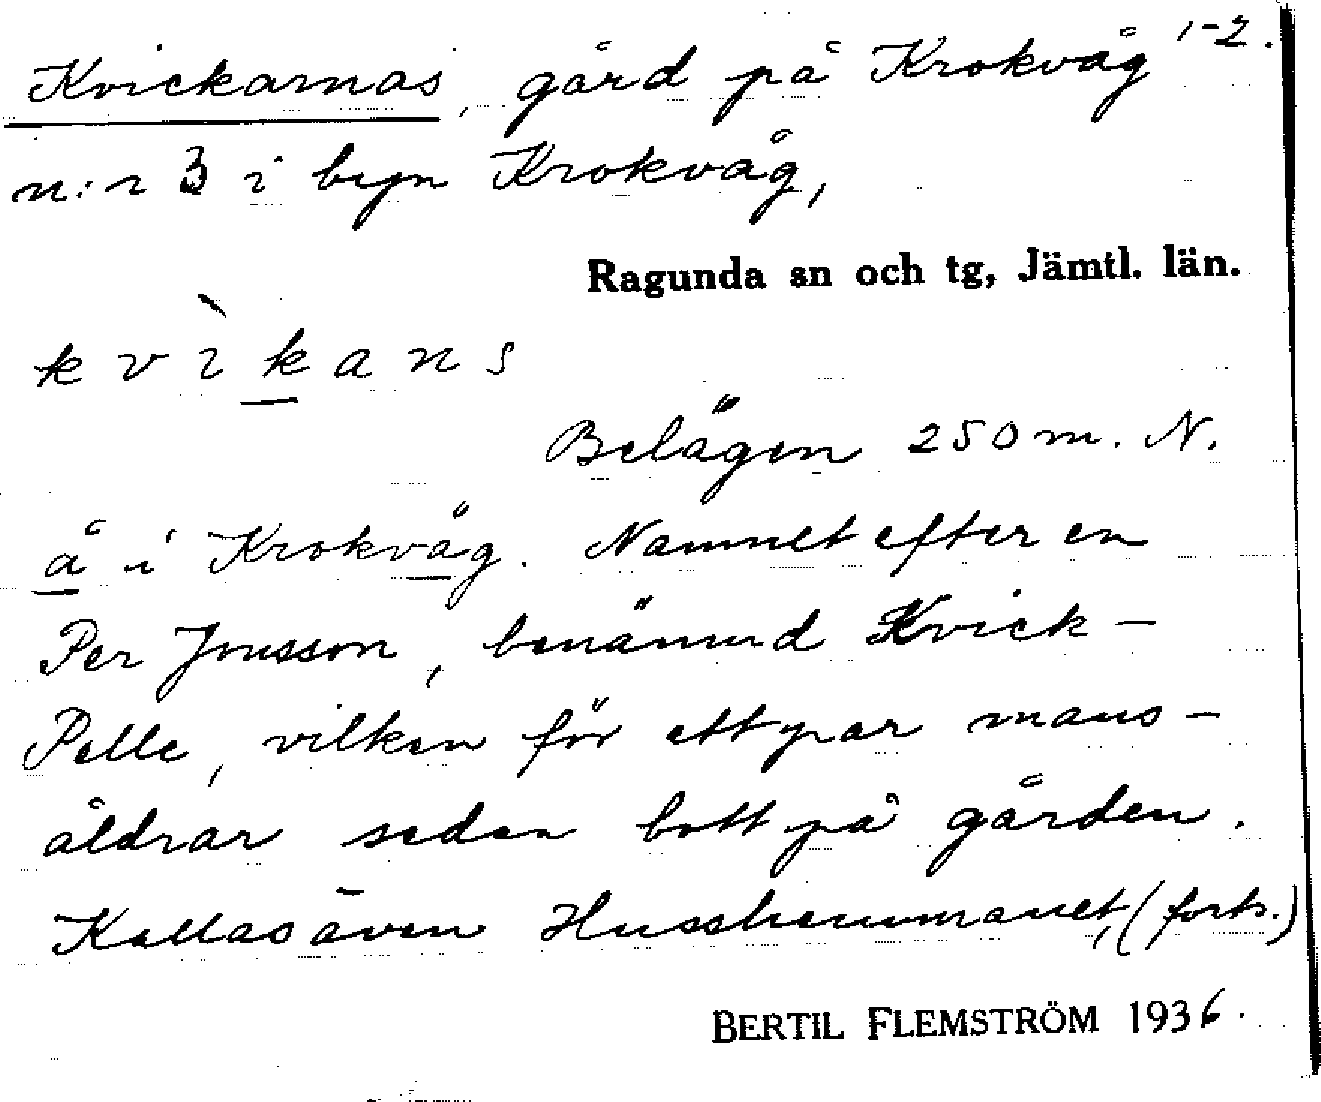 Kvickarnas, gård på Krokvåg 1-2.
n:r 3 i byn Krokvåg,
Ragunda sn och tg, Jämtl. län.
kvìkans
Belägen 250 m. N.
å i Krokvåg. Namnet efter en
Per Jonsson, benämnd Kvick-
Pelle, vilken för ett par mans-
åldrar sedan bott på gården.
Kallas även Husshemmanet, (forts.)
BERTIL FLEMSTRÖM 1936.